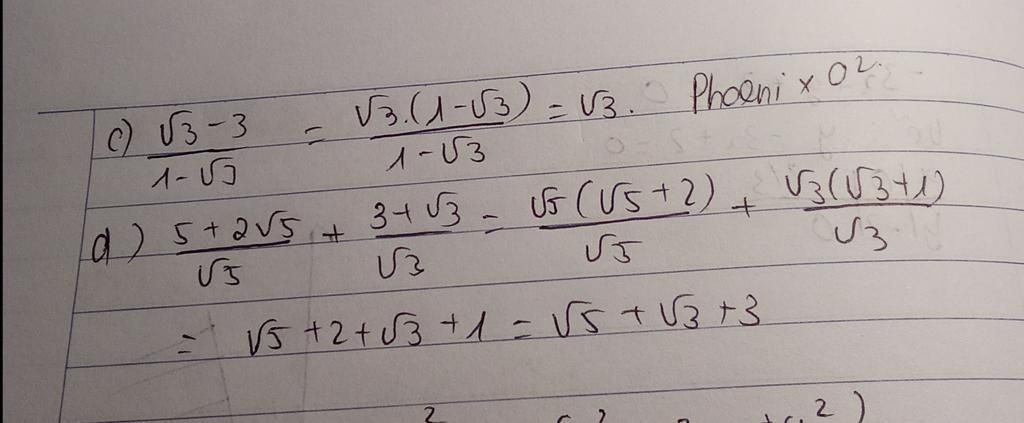 c) (√3 - 3)/(1 - √3) = (√3.(1 - √3))/(1 - √3) = √3. Phoenix 0².
d) (5 + 2√5)/√5 + (3 + √3)/√3 = (√5(√5 + 2))/√5 + (√3(√3 + 1))/√3
= √5 + 2 + √3 + 1 = √5 + √3 + 3